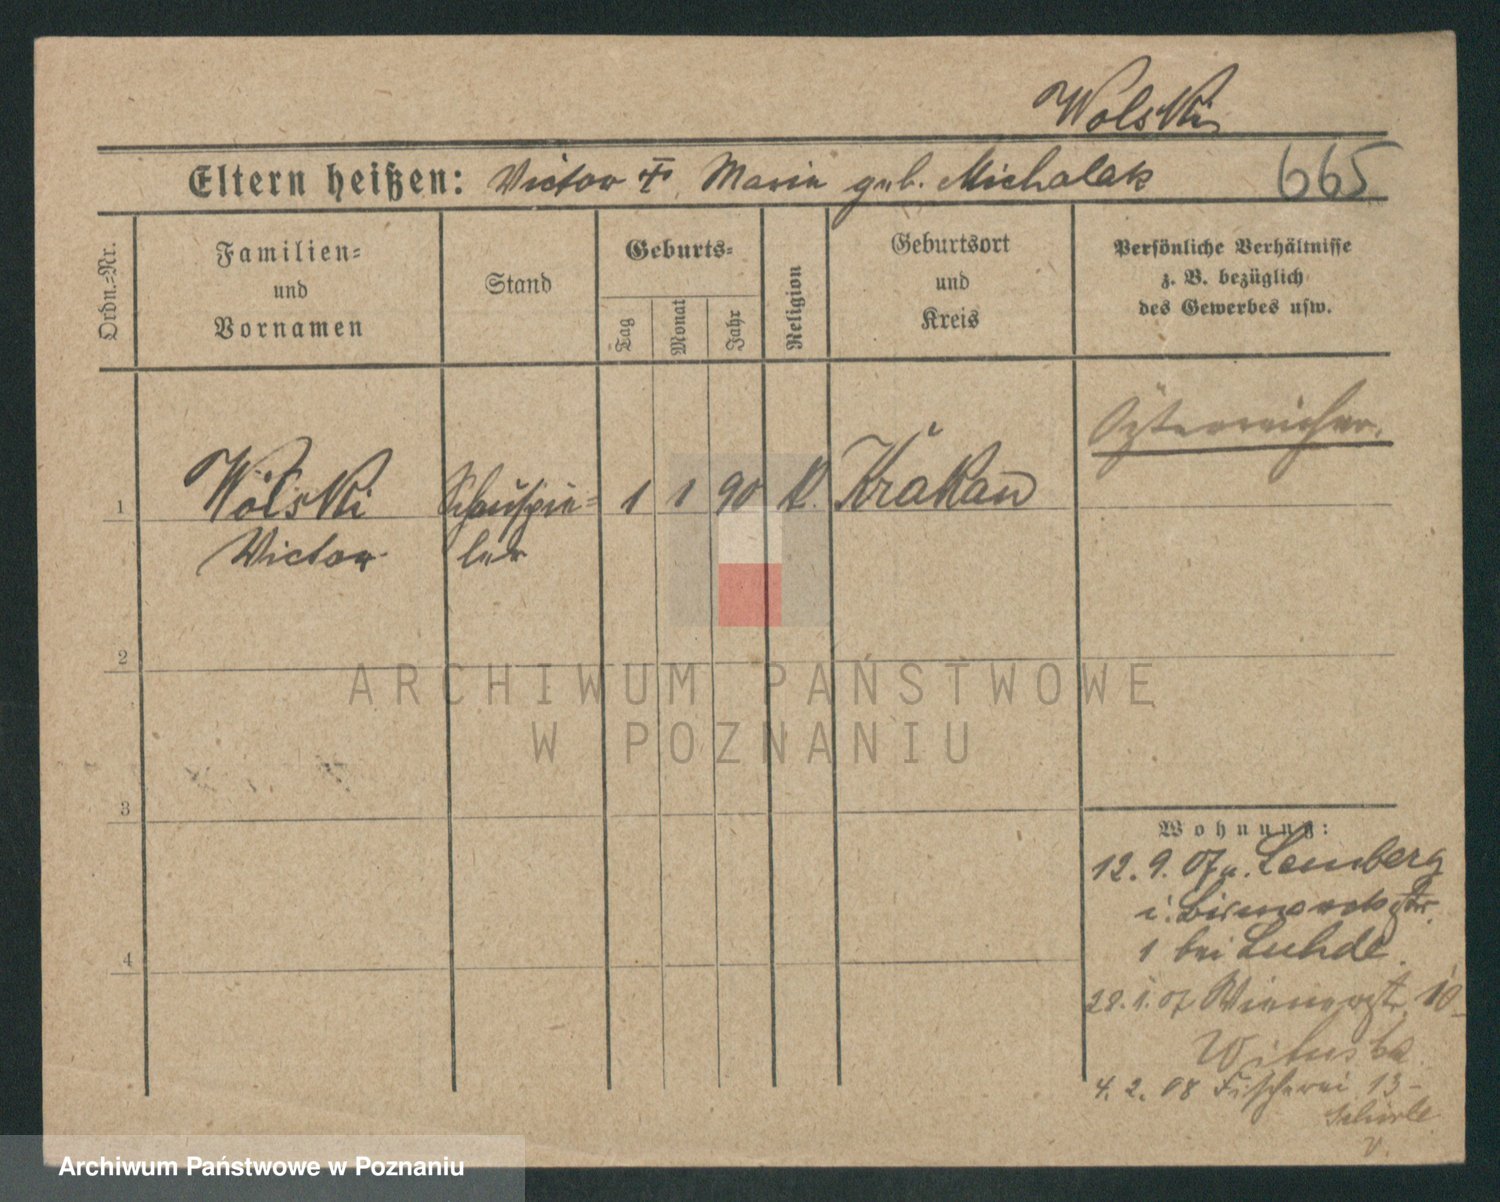 Wolski
Eltern heißen: Victor † Marie geb. Michalak 665
Ordn.-Nr.
Familien- und Vornamen
Stand
Geburts-
Tag
Monat
Jahr
Religion
Geburtsort und Kreis
Persönliche Verhältnisse
z. B. bezüglich
des Gewerbes usw.
Österreicher.
1 Wolski Schauspie= 1 1 90 K. Krakau
Victor ler
2
3
4
Wohnung:
12. 9. 07 v. Lemberg
i. Bismarckstr.
1 bei Luhde.
28. 07 Wienerstr. 10
4. 2. 08 Fischerei 13-
ARCHIWUM PAŃSTWOWE
W POZNANIU
Archiwum Państwowe w Poznaniu